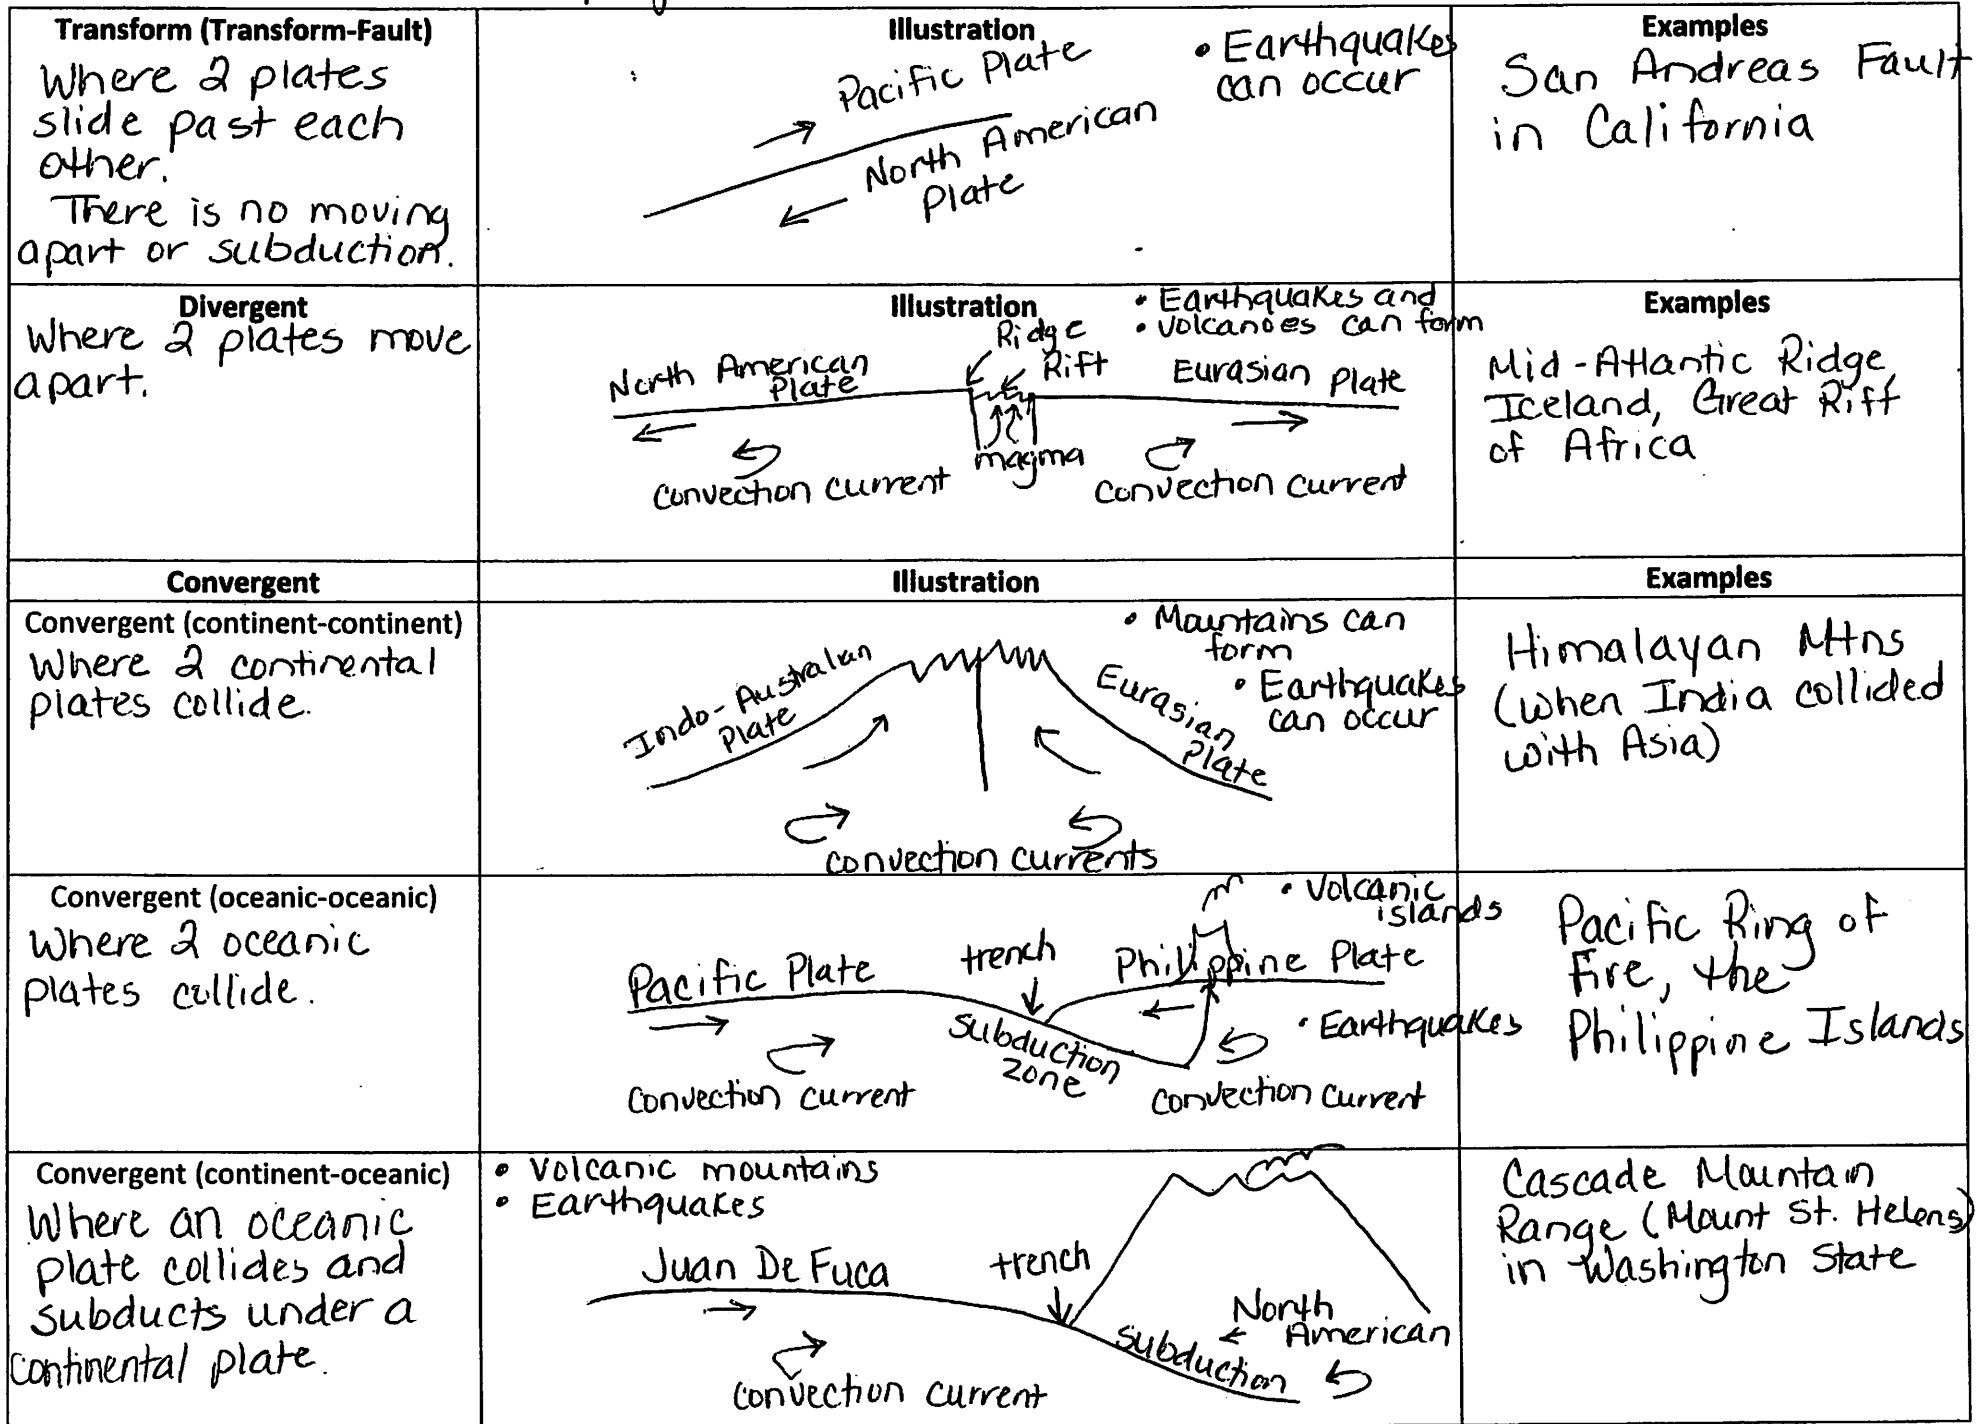 Transform (Transform-Fault)
Where 2 plates
slide past each
other.
There is no moving
apart or subduction.
Illustration
• Earthquakes
can occur
Pacific Plate
North American
Plate
Examples
San Andreas Fault
in California
Divergent
Where 2 plates move
apart.
Illustration
• Earthquakes and
• volcanoes can form
Ridge
Rift
North American
Plate
Eurasian Plate
magma
Convection current
Convection current
Examples
Mid-Atlantic Ridge,
Iceland, Great Rift
of Africa
Convergent
Illustration
Examples
Convergent (continent-continent)
Where 2 continental
plates collide.
• Mountains can
form
• Earthquakes
can occur
Indo-Australian
Plate
Eurasian
Plate
convection currents
Himalayan Mtns
(when India collided
with Asia)
Convergent (oceanic-oceanic)
Where 2 oceanic
plates collide.
• Volcanic
islands
Pacific Plate
trench
Philippine Plate
Subduction
zone
• Earthquakes
Convection current
Convection current
Pacific Ring of
Fire, the
Philippine Islands
Convergent (continent-oceanic)
Where an oceanic
plate collides and
subducts under a
continental plate.
• Volcanic mountains
• Earthquakes
Juan De Fuca
trench
North
American
Subduction
convection current
Cascade Mountain
Range (Mount St. Helens)
in Washington State